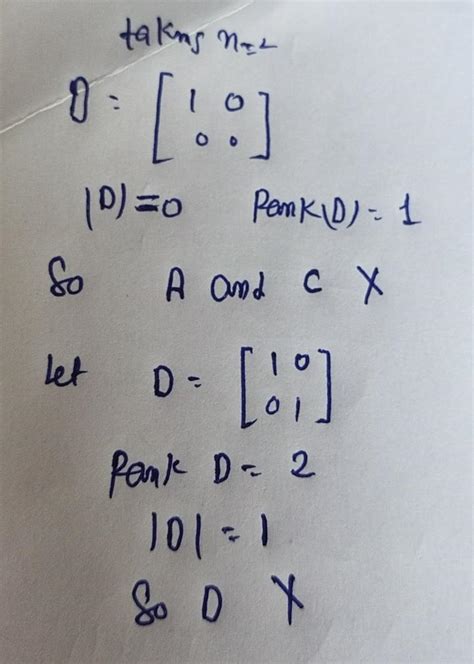 taking n=2
D = [1 0
0 0]
|D|=0 Rank(D) = 1
So A and C X
Let D = [1 0
0 1]
Rank D = 2
|D| = 1
So D X